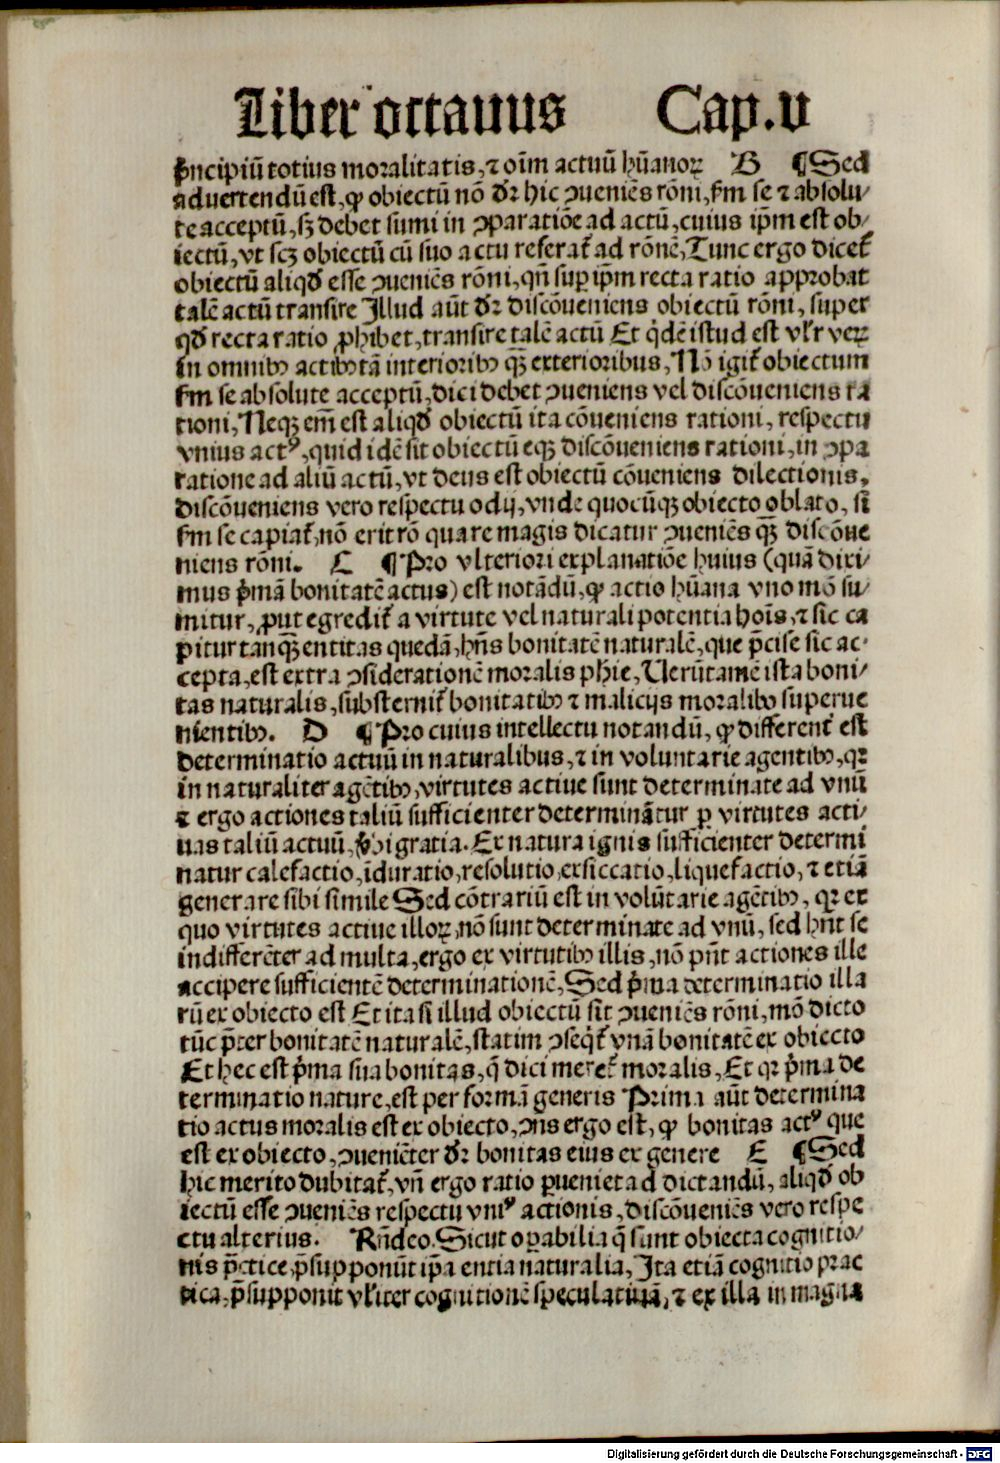 Liber octauus Cap.v
p̄ncipiū totius moralitatis, ⁊ oīm actuū hūanoꝝ B ¶ Sed
aduertendū est, ꝙ obiectū nō dr̄ hic ꝯueniēs rōni, ẜm se ⁊ absolu/
te acceptū, sꝫ debet sumi in ꝯparatiōe ad actū, cuius ip̄m est ob/
iectū, vt scꝫ obiectū cū suo actu referat̄ ad rōnē, Tunc ergo dicet̄
obiectū aliqd̄ esse ꝯueniēs rōni, qn̄ suꝑ ip̄m recta ratio approbat
talē actū transire Illud aūt dr̄ discōueniens obiectū rōni, super
qd̄ recta ratio ꝓhibet, transire talē actū Et q̇dē istud est vl̄r veꝝ
in omnibꝰ actibꝰ tā interioribꝰ qꝫ̄ exterioribus, Nō igit̄ obiectum
ẜm se absolute acceptū, dici debet ꝯueniens vel discōueniens ra
tioni, Neqꝫ em̄ est aliqd̄ obiectū ita cōueniens rationi, respectu
vnius actꝰ, quid idē sit obiectū eqꝫ discōueniens rationi, in ꝯpa
ratione ad aliū actū, vt deus est obiectū cōueniens dilectionis,
discōueniens vero respectu odij, vnde quocūqꝫ obiecto oblato, si
ẜm se capiat̄, nō erit rō quare magis dicatur ꝯueniēs qꝫ̄ discōue
niens rōni. C ¶ Pro vlteriori explanatiōe huius (quā dixi/
mus p̄mā bonitatē actus) est notādū, ꝙ actio hūana vno mō su/
mitur, ꝓut egredit̄ a virtute vel naturali potentia hoīs, ⁊ sic ca
pitur tanqꝫ̄ entitas quedā, hn̄s bonitatē naturalē, que p̄cise sic ac-
cepta, est extra ꝯsiderationē moralis phie, Verūtamē ista boni/
tas naturalis, substernit̄ bonitatibꝰ ⁊ malicijs moralibꝰ superue
nientibꝰ. D ¶ Pro cuius intellectu notandū, ꝙ different̄ est
determinatio actuū in naturalibus, ⁊ in voluntarie agentibꝰ, qꝛ
in naturaliter agētibꝰ, virtutes actiue sunt determinate ad vnū
⁊ ergo actiones taliū sufficienter determinātur ꝑ virtutes acti/
uas taliū actuū, v̄bi gratia. Ex natura ignis sufficienter determi
natur calefactio, īduratio, resolutio, exsiccatio, liquefactio, ⁊ etiā
generare sibi simile Sed cōtrariū est in volūtarie agētibꝰ, qꝛ ex
quo virtutes actiue illoꝝ, nō sunt determinate ad vnū, sed hn̄t se
indifferēter ad multa, ergo ex virtutibꝰ illis, nō pn̄t actiones ille
accipere sufficientē determinationē, Sed p̄ma determinatio illa
rū ex obiecto est Et ita si illud obiectū sit ꝯueniēs rōni, mō dicto
tūc p̄ter bonitatē naturalē, statim ꝯseq̇t̄ vnā bonitatē ex obiecto
Et hec est p̄ma sua bonitas, q̄ dici meret̄ moralis, Et qꝛ p̄ma de
terminatio nature, est per formā generis Prima aūt determina
tio actus moralis est ex obiecto, ꝯn̄s ergo est, ꝙ bonitas actꝰ que
est ex obiecto, ꝯueniēter dr̄ bonitas eius ex genere E ¶ Sed
hic merito dubitat̄, vn̄ ergo ratio ꝓueniet ad dictandū, aliqd̄ ob
iectū esse ꝯueniēs respectu vniꝰ actionis, discōueniēs vero respe
ctu alterius. Rn̄deo. Sicut oꝑabilia q̄ sunt obiecta cognitio/
nis p̄ctice, p̄supponūt ip̄a entia naturalia, Ita etiā cognitio prac
tica, p̄supponit vl̄iter cognitionē speculatiuā, ⁊ ex illa in magna